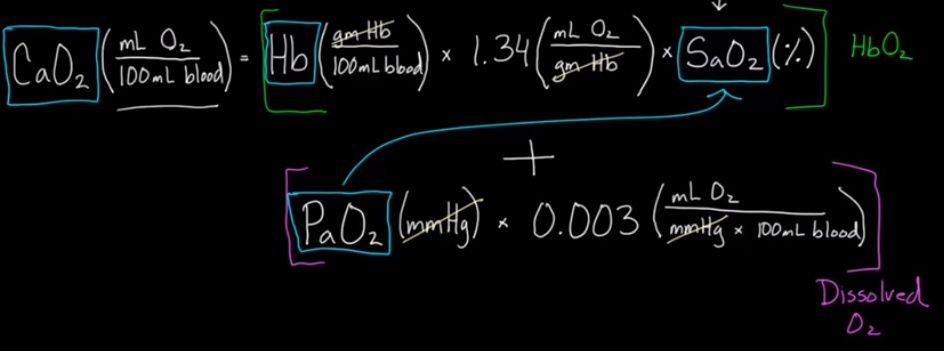 CaO₂ (mL O₂ / 100mL blood) = [Hb (gm Hb / 100mL blood) × 1.34 (mL O₂ / gm Hb) × SaO₂ (%)] HbO₂
+
[PaO₂ (mmHg) × 0.003 (mL O₂ / mmHg × 100mL blood)]
Dissolved
O₂